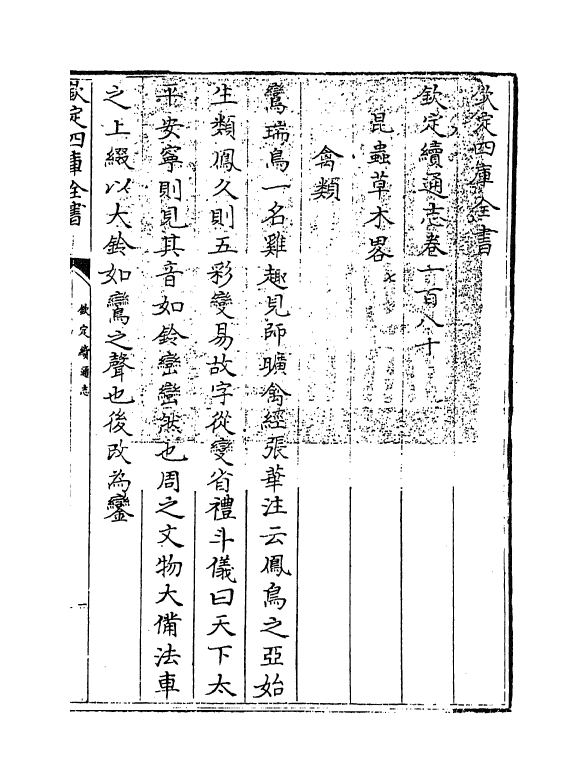 欽定四庫全書
欽定續通志卷一百八十
昆蟲草木畧七
禽類
鸞瑞鳥一名雞趣見師曠禽經張華注云鳳鳥之亞始
生類鳳久則五彩變易故字從變省禮斗儀曰天下太
平安寧則見其音如鈴巒巒然也周之文物大備法車
之上綴以大鈴如鸞之聲也後改為鑾
欽定四庫全書
欽定續通志
一